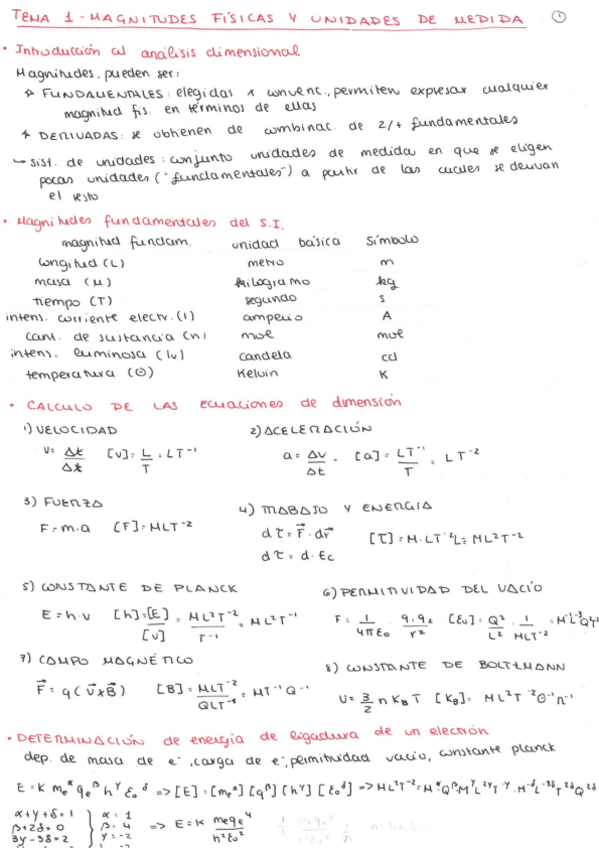 TEMA 1 - MAGNITUDES FÍSICAS Y UNIDADES DE MEDIDA ①
• Introducción al análisis dimensional
Magnitudes, pueden ser:
↳ FUNDAMENTALES: elegidas x convenc., permiten expresar cualquier
magnitud fís. en términos de ellas
↳ DERIVADAS: se obtienen de combinac. de 2/+ fundamentales
↳ sist. de unidades: conjunto unidades de medida en que se eligen
pocas unidades ("fundamentales") a partir de las cuales se derivan
el resto
• Magnitudes fundamentales del S.I.
magnitud fundam. unidad básica símbolo
longitud (L) metro m
masa (M) kilogramo kg
tiempo (T) segundo s
intens. corriente electr. (I) amperio A
cant. de sustancia (n) mol mol
intens. luminosa (Iv) candela cd
temperatura (Θ) Kelvin K
• CALCULO DE LAS ecuaciones de dimensión
1) VELOCIDAD 2) ACELERACIÓN
V = Δt/Δt [v] = L/T = LT⁻¹ a = Δv/Δt - [a] = LT⁻¹/T = LT⁻²
3) FUERZA 4) TRABAJO Y ENERGIA
F = m·a [F] = MLT⁻² dτ = F⃗·dr⃗ [τ] = M·LT⁻²L = ML²T⁻²
dτ = d·Ec
5) CONSTANTE DE PLANCK 6) PERMITIVIDAD DEL VACÍO
E = h·ν [h] = [E]/[ν] = ML²T⁻²/T⁻¹ = ML²T⁻¹ F = 1/4πε₀ q·q₂/r² [ε₀] = Q²/L² · 1/MLT⁻² = M⁻¹L⁻³Q²T²
7) CAMPO MAGNÉTICO 8) CONSTANTE DE BOLTZMANN
F⃗ = q(v⃗xB⃗) [B] = MLT⁻²/QLT⁻¹ = MT⁻¹Q⁻¹ U = 3/2 n K_B T [K_B] = ML²T⁻²Θ⁻¹n⁻¹
• DETERMINACIÓN de energía de ligadura de un electrón
dep. de masa de e⁻, carga de e⁻, permitividad vacío, constante planck
E = K mₑ^α qₑ^β h^γ ε₀^δ => [E] = [mₑ^α][q^β][h^γ][ε₀^δ] => ML²T⁻² = M^α Q^β M^γ L^2γ T^-γ · M^-δ L^-3δ T^2δ Q^2δ
α+γ+δ=1 } α = 1
β+2δ=0 } β = 4 => E = K mₑqₑ⁴/h²ε₀²
3γ-3δ=2 } γ = -2